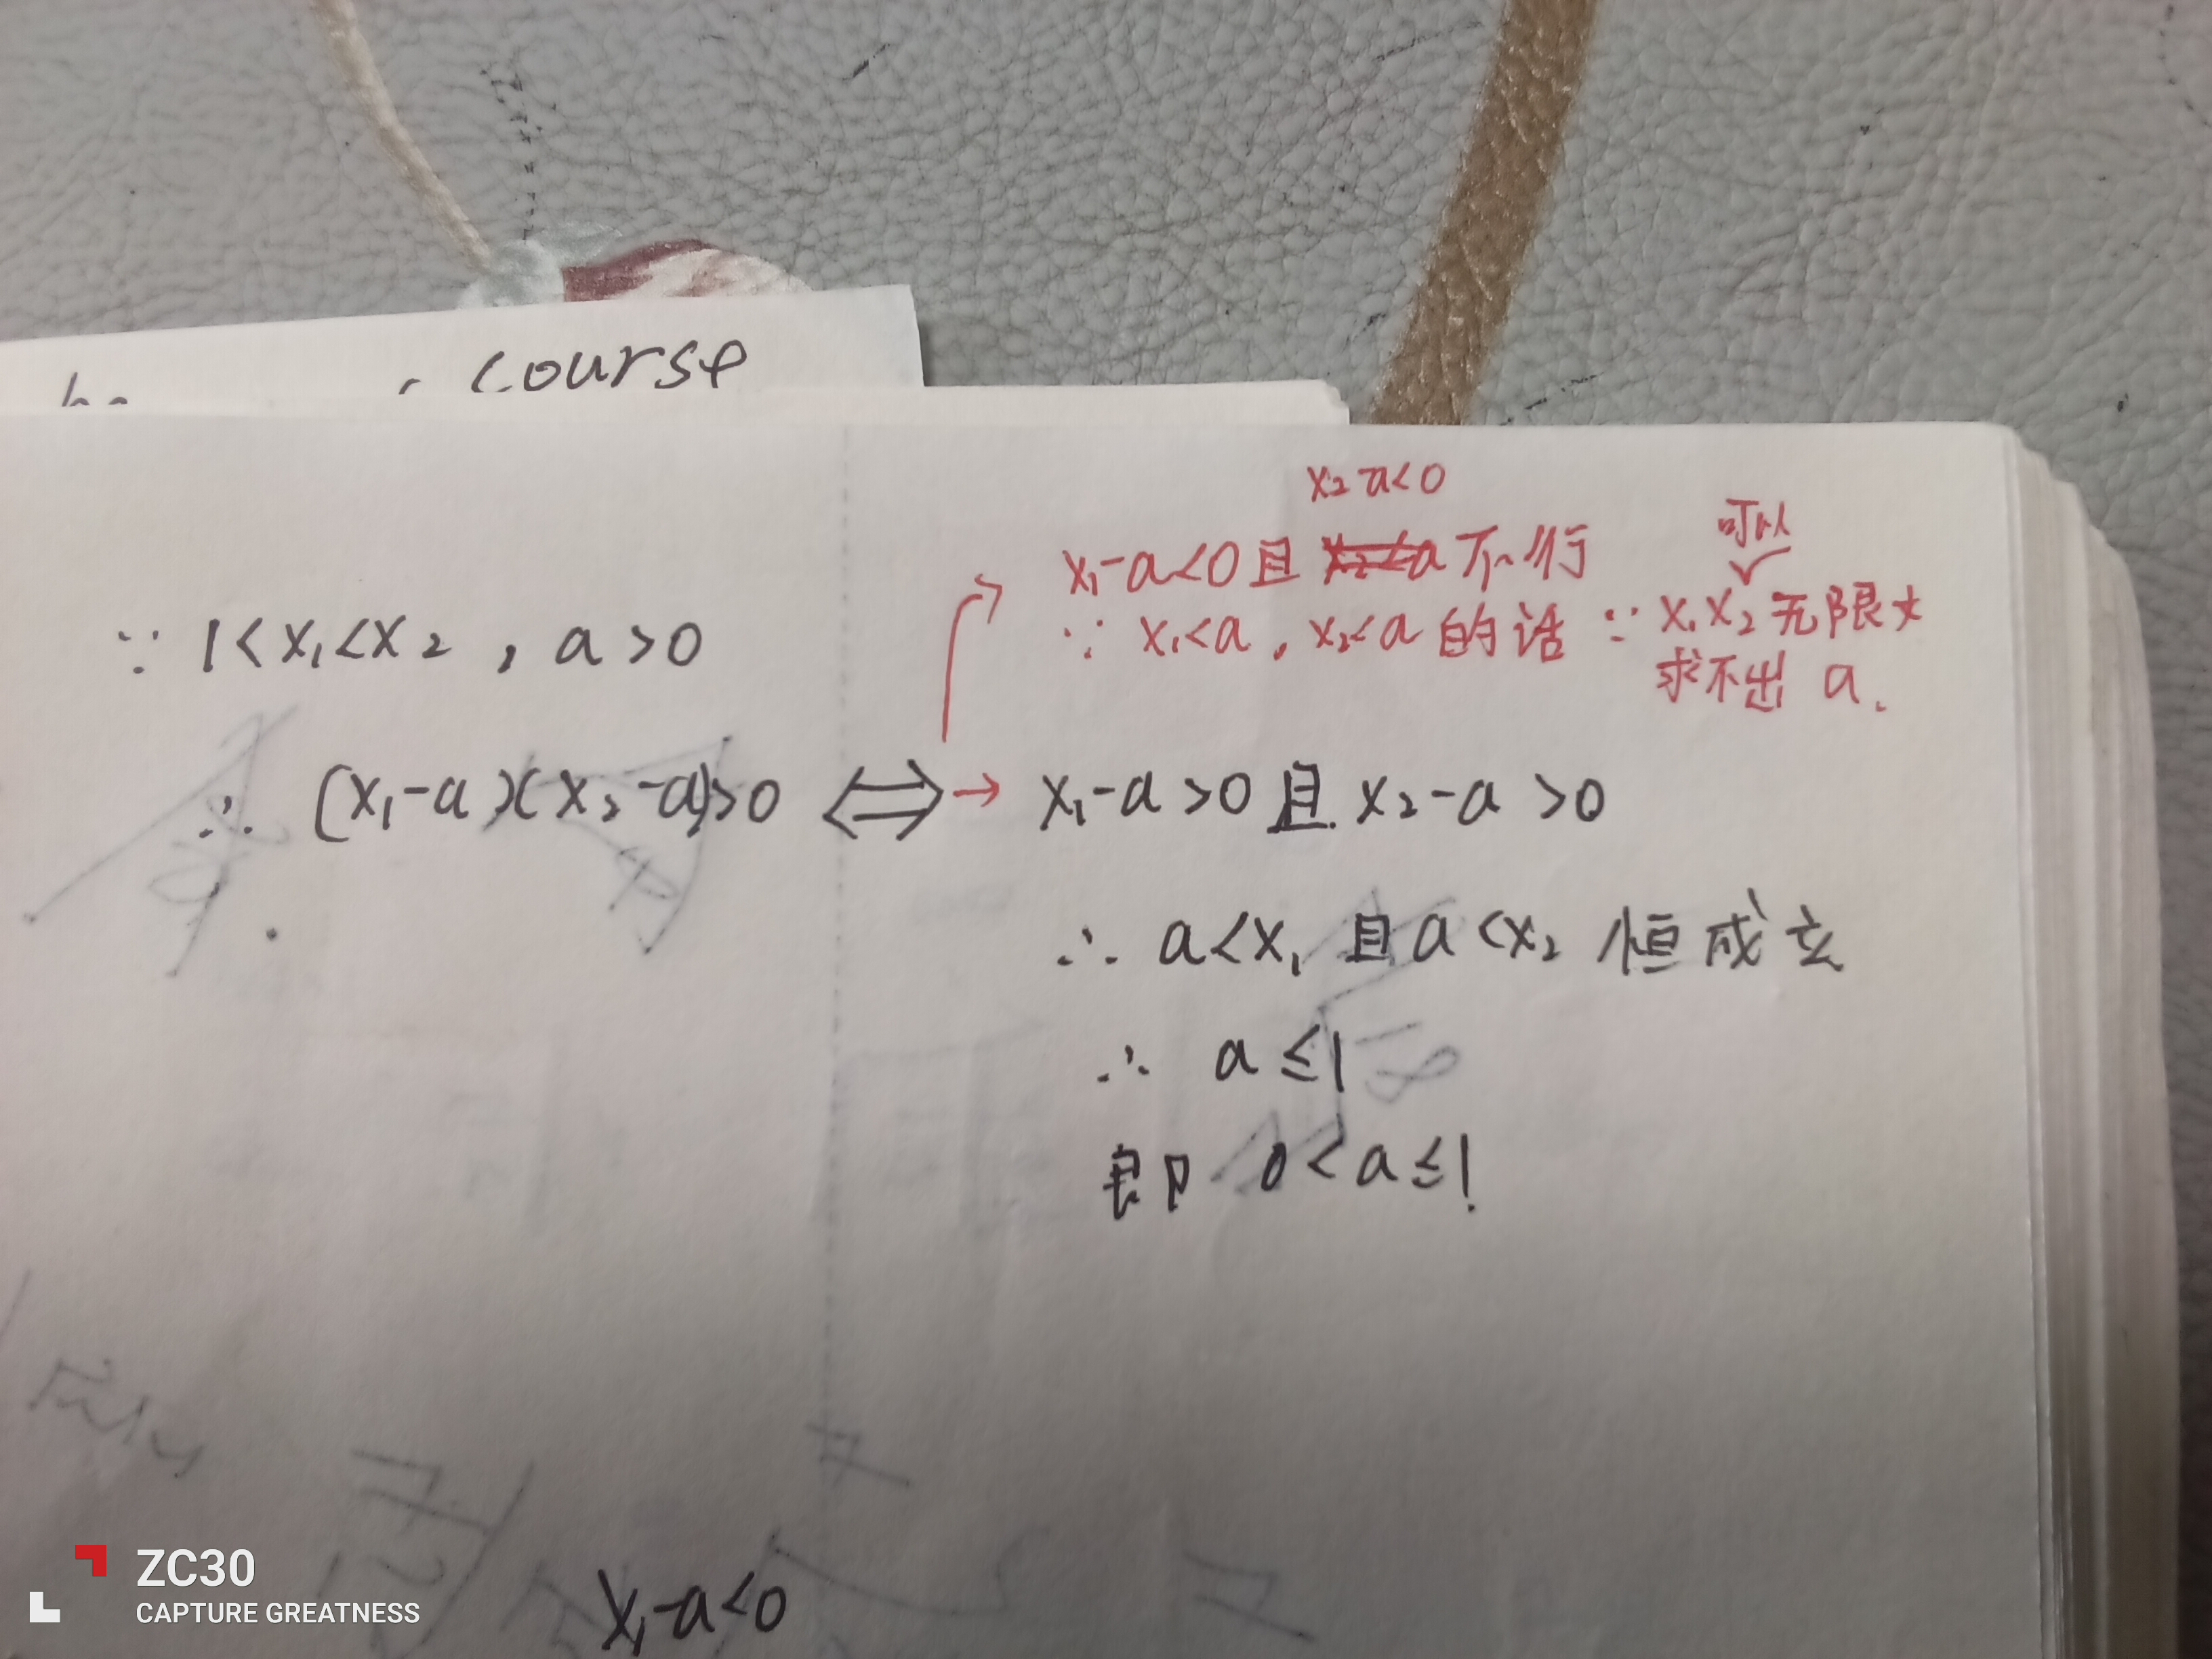 course
x₂-a<0
可以
x₁-a<0且 x₂<a 不行
∵ x₁<a , x₂<a 的话 ∵ x₁x₂无限大
求不出 a.
∵ 1<x₁<x₂ , a>0
∴ (x₁-a)(x₂-a)>0 ⟺ → x₁-a>0且x₂-a>0
∴ a<x₁ 且a<x₂ 恒成立
∴ a≤1
即 0<a≤1
x₁-a<0
ZC30
CAPTURE GREATNESS